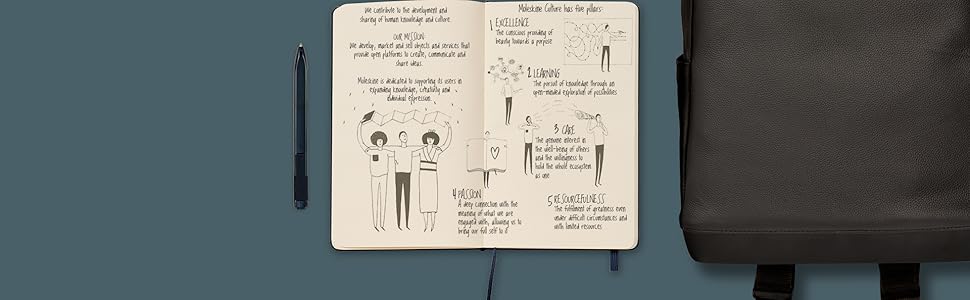 We contribute to the development and
sharing of human knowledge and culture.
OUR MISSION
We develop, market and sell objects and services that
provide open platforms to create, communicate and
share ideas.
Moleskine is dedicated to supporting its users in
expanding knowledge, creativity and
individual expression.
Moleskine Culture has five pillars:
1 EXCELLENCE
The conscious providing of
beauty towards a purpose
2 LEARNING
The pursuit of knowledge through an
open-minded exploration of possibilities
3 CARE
The genuine interest in
the well-being of others
and the willingness to
hold the whole ecosystem
as one
4 PASSION
A deep connection with the
meaning of what we are
engaged with, allowing us to
bring our full self to it
5 RESOURCEFULNESS
The fulfilment of greatness even
under difficult circumstances and
with limited resources